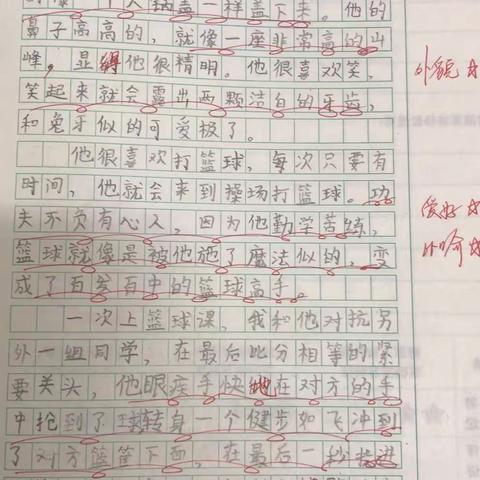 一样盖下来。他的
鼻子高高的，就像一座非常高的山
峰。显得他很精明。他很喜欢笑，
笑起来就会露出两颗洁白的牙齿，
和兔牙似的可爱极了。
他很喜欢打篮球，每次只要有
时间，他就会来到操场打篮球。功
夫不负有心人，因为他勤学苦练，
篮球就像是被他施了魔法似的，变
成了百发百中的篮球高手。
一次上篮球课，我和他对抗另
外一组同学，在最后比分相等的紧
要关头，他眼疾手快地在对方的手
中抢到了球转身一个健步如飞冲到
了对方篮筐下面，在最后一秒
外貌
爱好
比喻